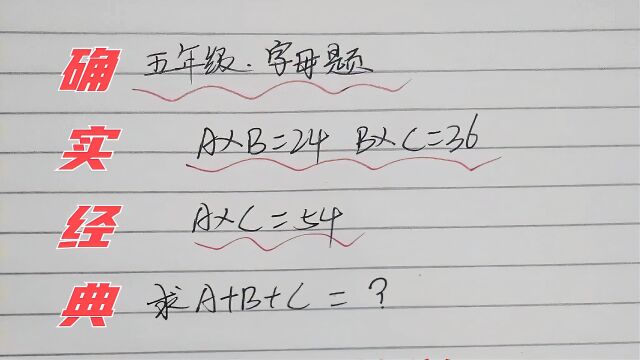 确实经典
五年级.字母题
A×B=24 B×C=36
A×C=54
求A+B+C=?